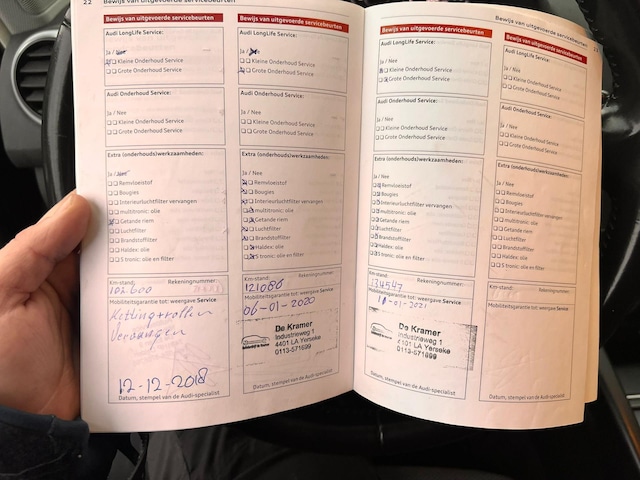 22 Bewijs van uitgevoerde servicebeurten
Bewijs van uitgevoerde servicebeurten
Audi LongLife Service:
Ja / Nee
Kleine Onderhoud Service
Grote Onderhoud Service
Audi Onderhoud Service:
Ja / Nee
Kleine Onderhoud Service
Grote Onderhoud Service
Extra (onderhouds)werkzaamheden:
Ja / Nee
Remvloeistof
Bougies
Interieurluchtfilter vervangen
multitronic: olie
Getande riem
Luchtfilter
Brandstoffilter
Haldex: olie
S tronic: olie en filter
Km-stand: Rekeningnummer:
102.600
Mobiliteitsgarantie tot: weergave Service
Ketting+rollen
Vervangen
12-12-2018
Datum, stempel van de Audi-specialist
Bewijs van uitgevoerde servicebeurten
Audi LongLife Service:
Ja /
Kleine Onderhoud Service
Grote Onderhoud Service
Audi Onderhoud Service:
Ja / Nee
Kleine Onderhoud Service
Grote Onderhoud Service
Extra (onderhouds)werkzaamheden:
Ja / Nee
Remvloeistof
Bougies
Interieurluchtfilter vervangen
multitronic: olie
Getande riem
Luchtfilter
Brandstoffilter
Haldex: olie
S tronic: olie en filter
Km-stand: Rekeningnummer:
121086
Mobiliteitsgarantie tot: weergave Service
06-01-2020
De Kramer
Industrieweg 1
4401 LA Yerseke
0113-571699
Datum, stempel van de Audi-specialist
Bewijs van uitgevoerde servicebeurten 23
Bewijs van uitgevoerde servicebeurten
Audi LongLife Service:
Ja / Nee
Kleine Onderhoud Service
Grote Onderhoud Service
Audi Onderhoud Service:
Ja / Nee
Kleine Onderhoud Service
Grote Onderhoud Service
Extra (onderhouds)werkzaamheden:
Ja / Nee
Remvloeistof
Bougies
Interieurluchtfilter vervangen
multitronic: olie
Getande riem
Luchtfilter
Brandstoffilter
Haldex: olie
S tronic: olie en filter
Km-stand: Rekeningnummer:
134547
Mobiliteitsgarantie tot: weergave Service
-01-2021
De Kramer
Industrieweg 1
4401 LA Yerseke
0113-571699
Datum, stempel van de Audi-specialist
Bewijs van uitgevoerde servicebeurten
Audi LongLife Service:
Ja / Nee
Kleine Onderhoud Service
Grote Onderhoud Service
Audi Onderhoud Service:
Ja / Nee
Kleine Onderhoud Service
Grote Onderhoud Service
Extra (onderhouds)werkzaamheden:
Ja / Nee
Remvloeistof
Bougies
Interieurluchtfilter vervangen
multitronic: olie
Getande riem
Luchtfilter
Brandstoffilter
Haldex: olie
S tronic: olie en filter
Km-stand: Rekeningnummer:
Mobiliteitsgarantie tot: weergave Service
Datum, stempel van de Audi-specialist